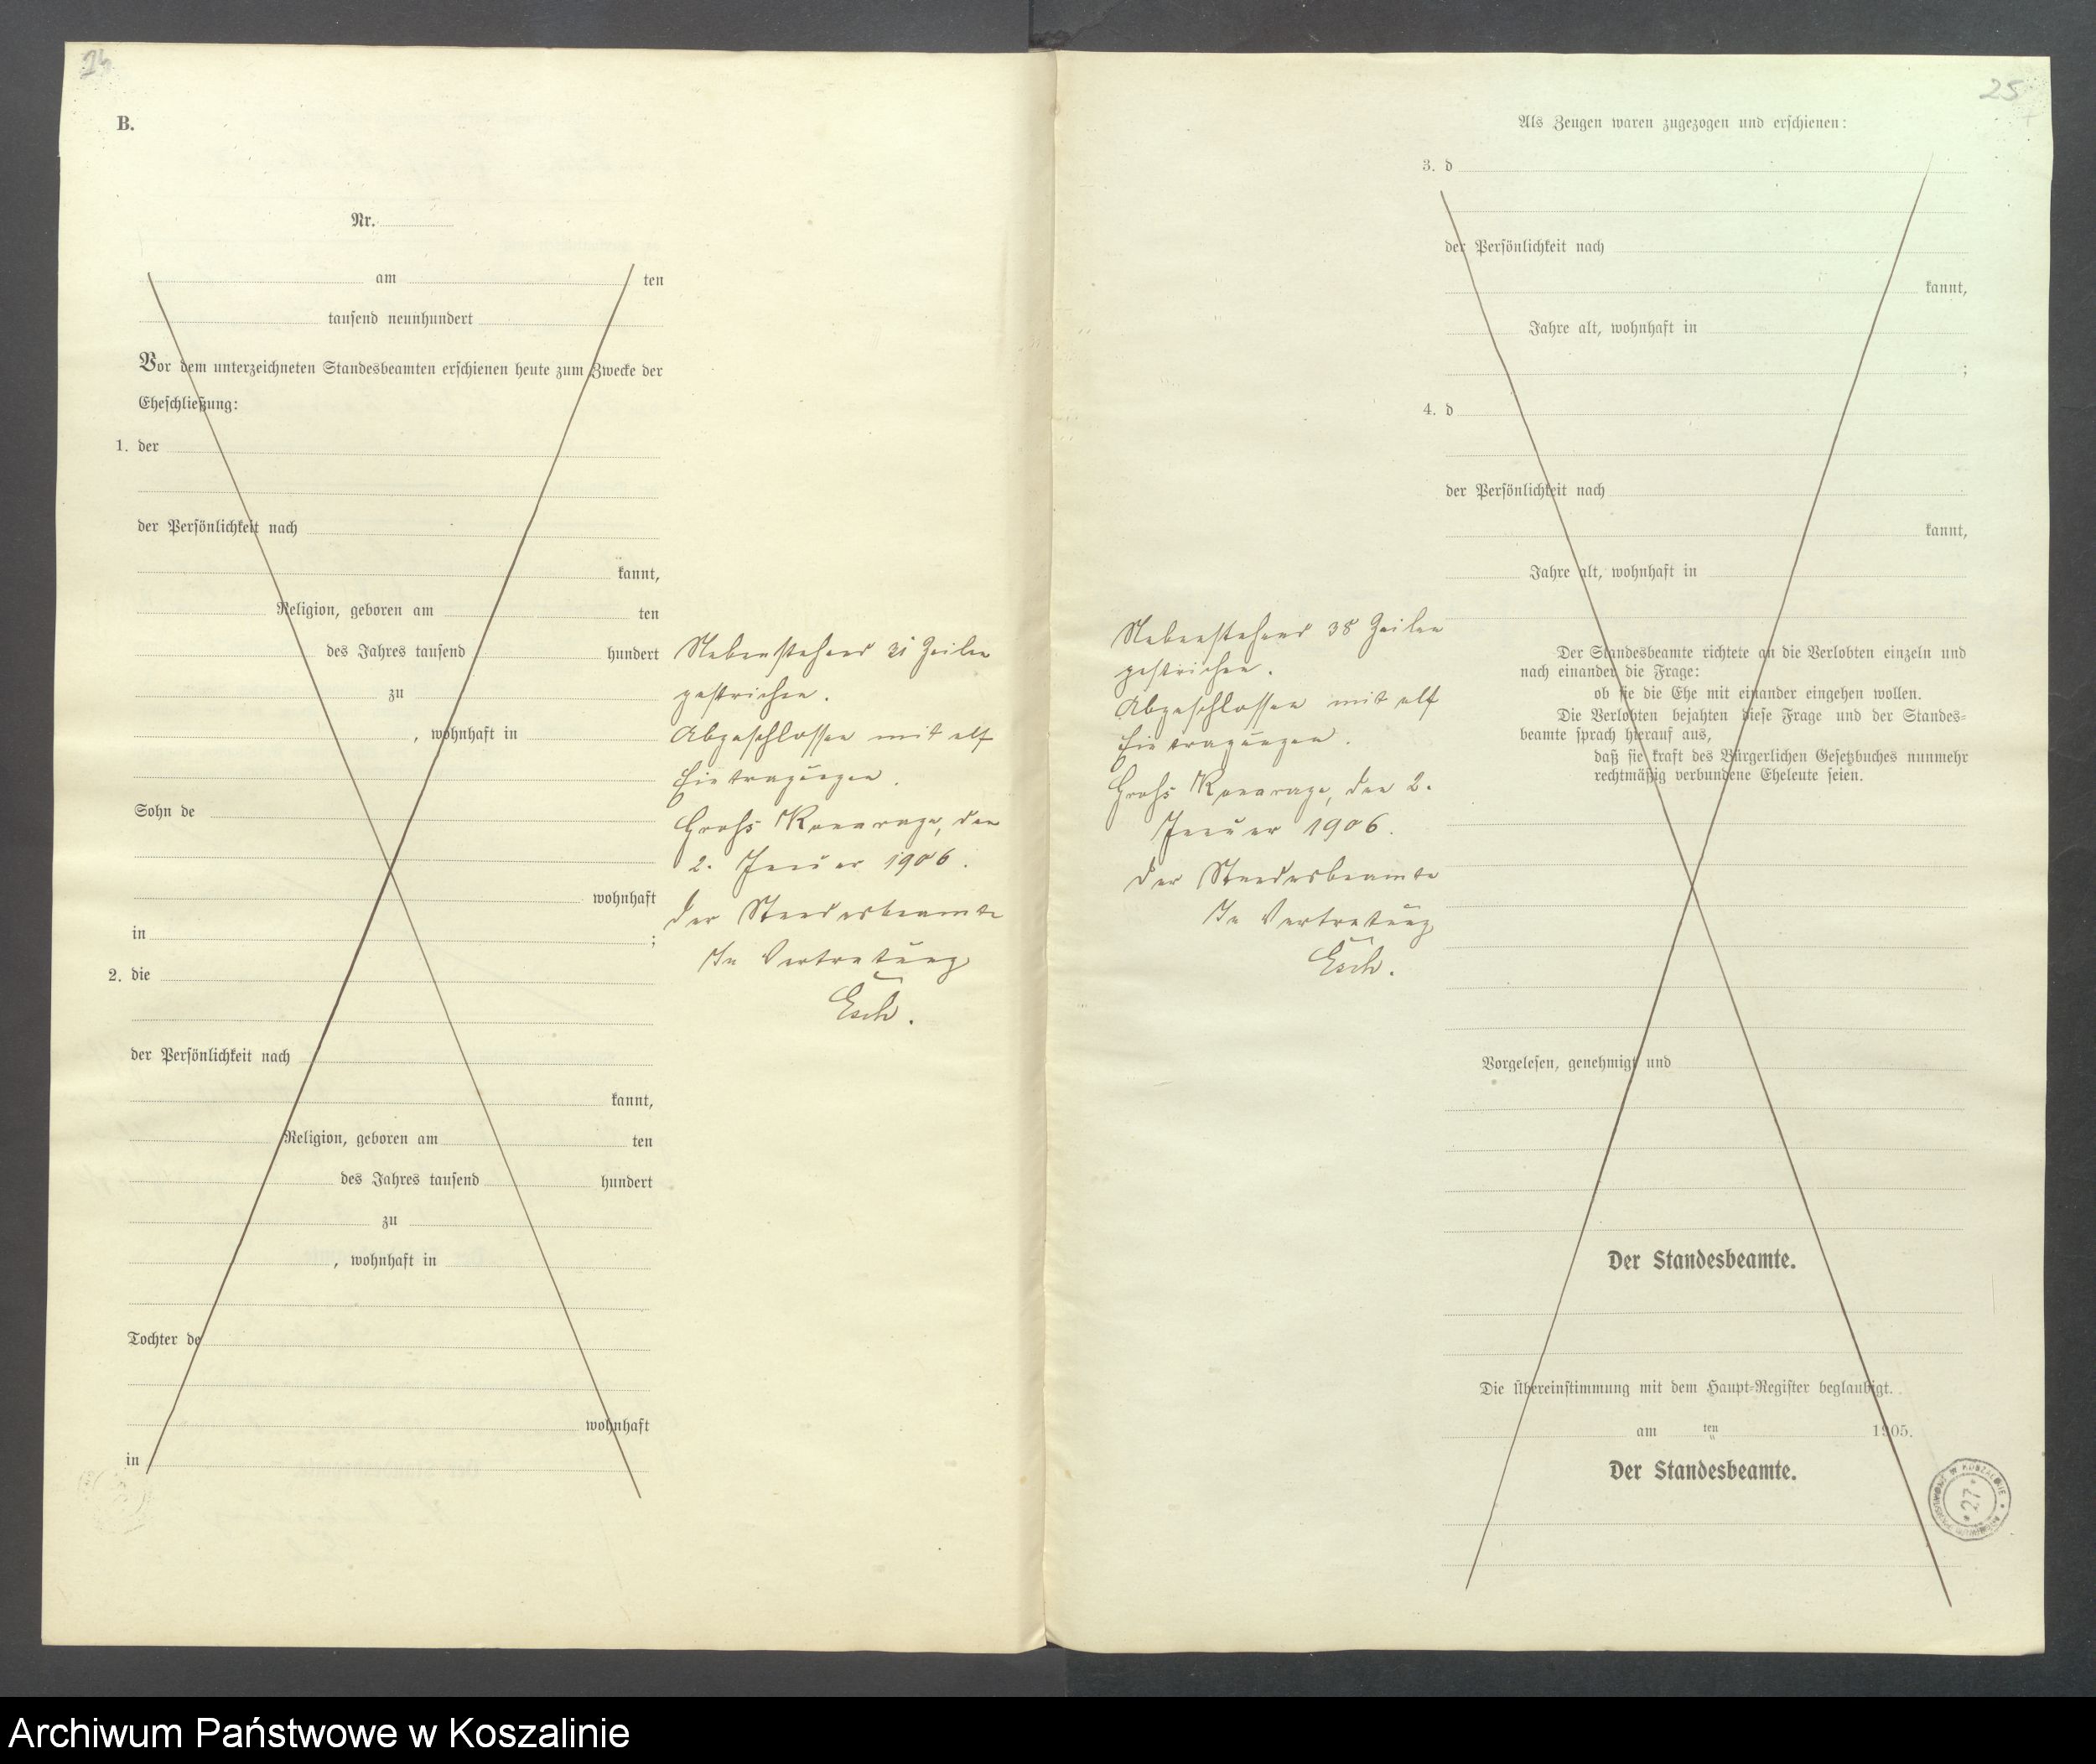 24
B.
Nr.
am ten
tausend neunhundert
Vor dem unterzeichneten Standesbeamten erschienen heute zum Zwecke der
Eheschließung:
1. der
der Persönlichkeit nach
kannt,
Religion, geboren am ten
des Jahres tausend hundert
zu
, wohnhaft in
Sohn de
wohnhaft
in ;
2. die
der Persönlichkeit nach
kannt,
Religion, geboren am ten
des Jahres tausend hundert
zu
, wohnhaft in
Tochter de
wohnhaft
in
Nebenstehend 31 Zeilen
gestrichen.
Abgeschlossen mit elf
Eintragungen.
Groß, den
2. Januar 1906.
Der Standesbeamte
In Vertretung
Esch.
25
Als Zeugen waren zugezogen und erschienen:
3. d
der Persönlichkeit nach
kannt,
Jahre alt, wohnhaft in
;
4. d
der Persönlichkeit nach
kannt,
Jahre alt, wohnhaft in
Der Standesbeamte richtete an die Verlobten einzeln und
nach einander die Frage:
ob sie die Ehe mit einander eingehen wollen.
Die Verlobten bejahten diese Frage und der Standes=
beamte sprach hierauf aus,
daß sie kraft des Bürgerlichen Gesetzbuches nunmehr
rechtmäßig verbundene Eheleute seien.
Vorgelesen, genehmigt und
Der Standesbeamte.
Die Übereinstimmung mit dem Haupt=Register beglaubigt.
am ten 1905.
Der Standesbeamte.
Nebenstehend 38 Zeilen
gestrichen.
Abgeschlossen mit elf
Eintragungen.
Groß, den 2.
Januar 1906.
Der Standesbeamte
In Vertretung
Esch.
W KOSZALINIE
27
Archiwum Państwowe w Koszalinie